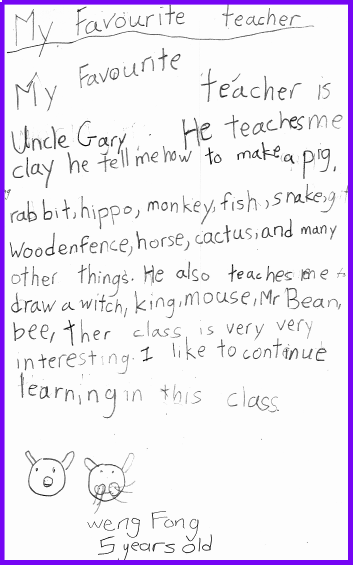 My Favourite teacher
My Favourite teacher is
Uncle Gary. He teaches me
clay he tell me how to make a pig,
rabbit, hippo, monkey, fish, snake,
wooden fence, horse, cactus, and many
other things. He also teaches me
draw a witch, king, mouse, Mr Bean,
bee, ther class is very very
interesting. I like to continue
learning in this class.
weng Fong
5 years old